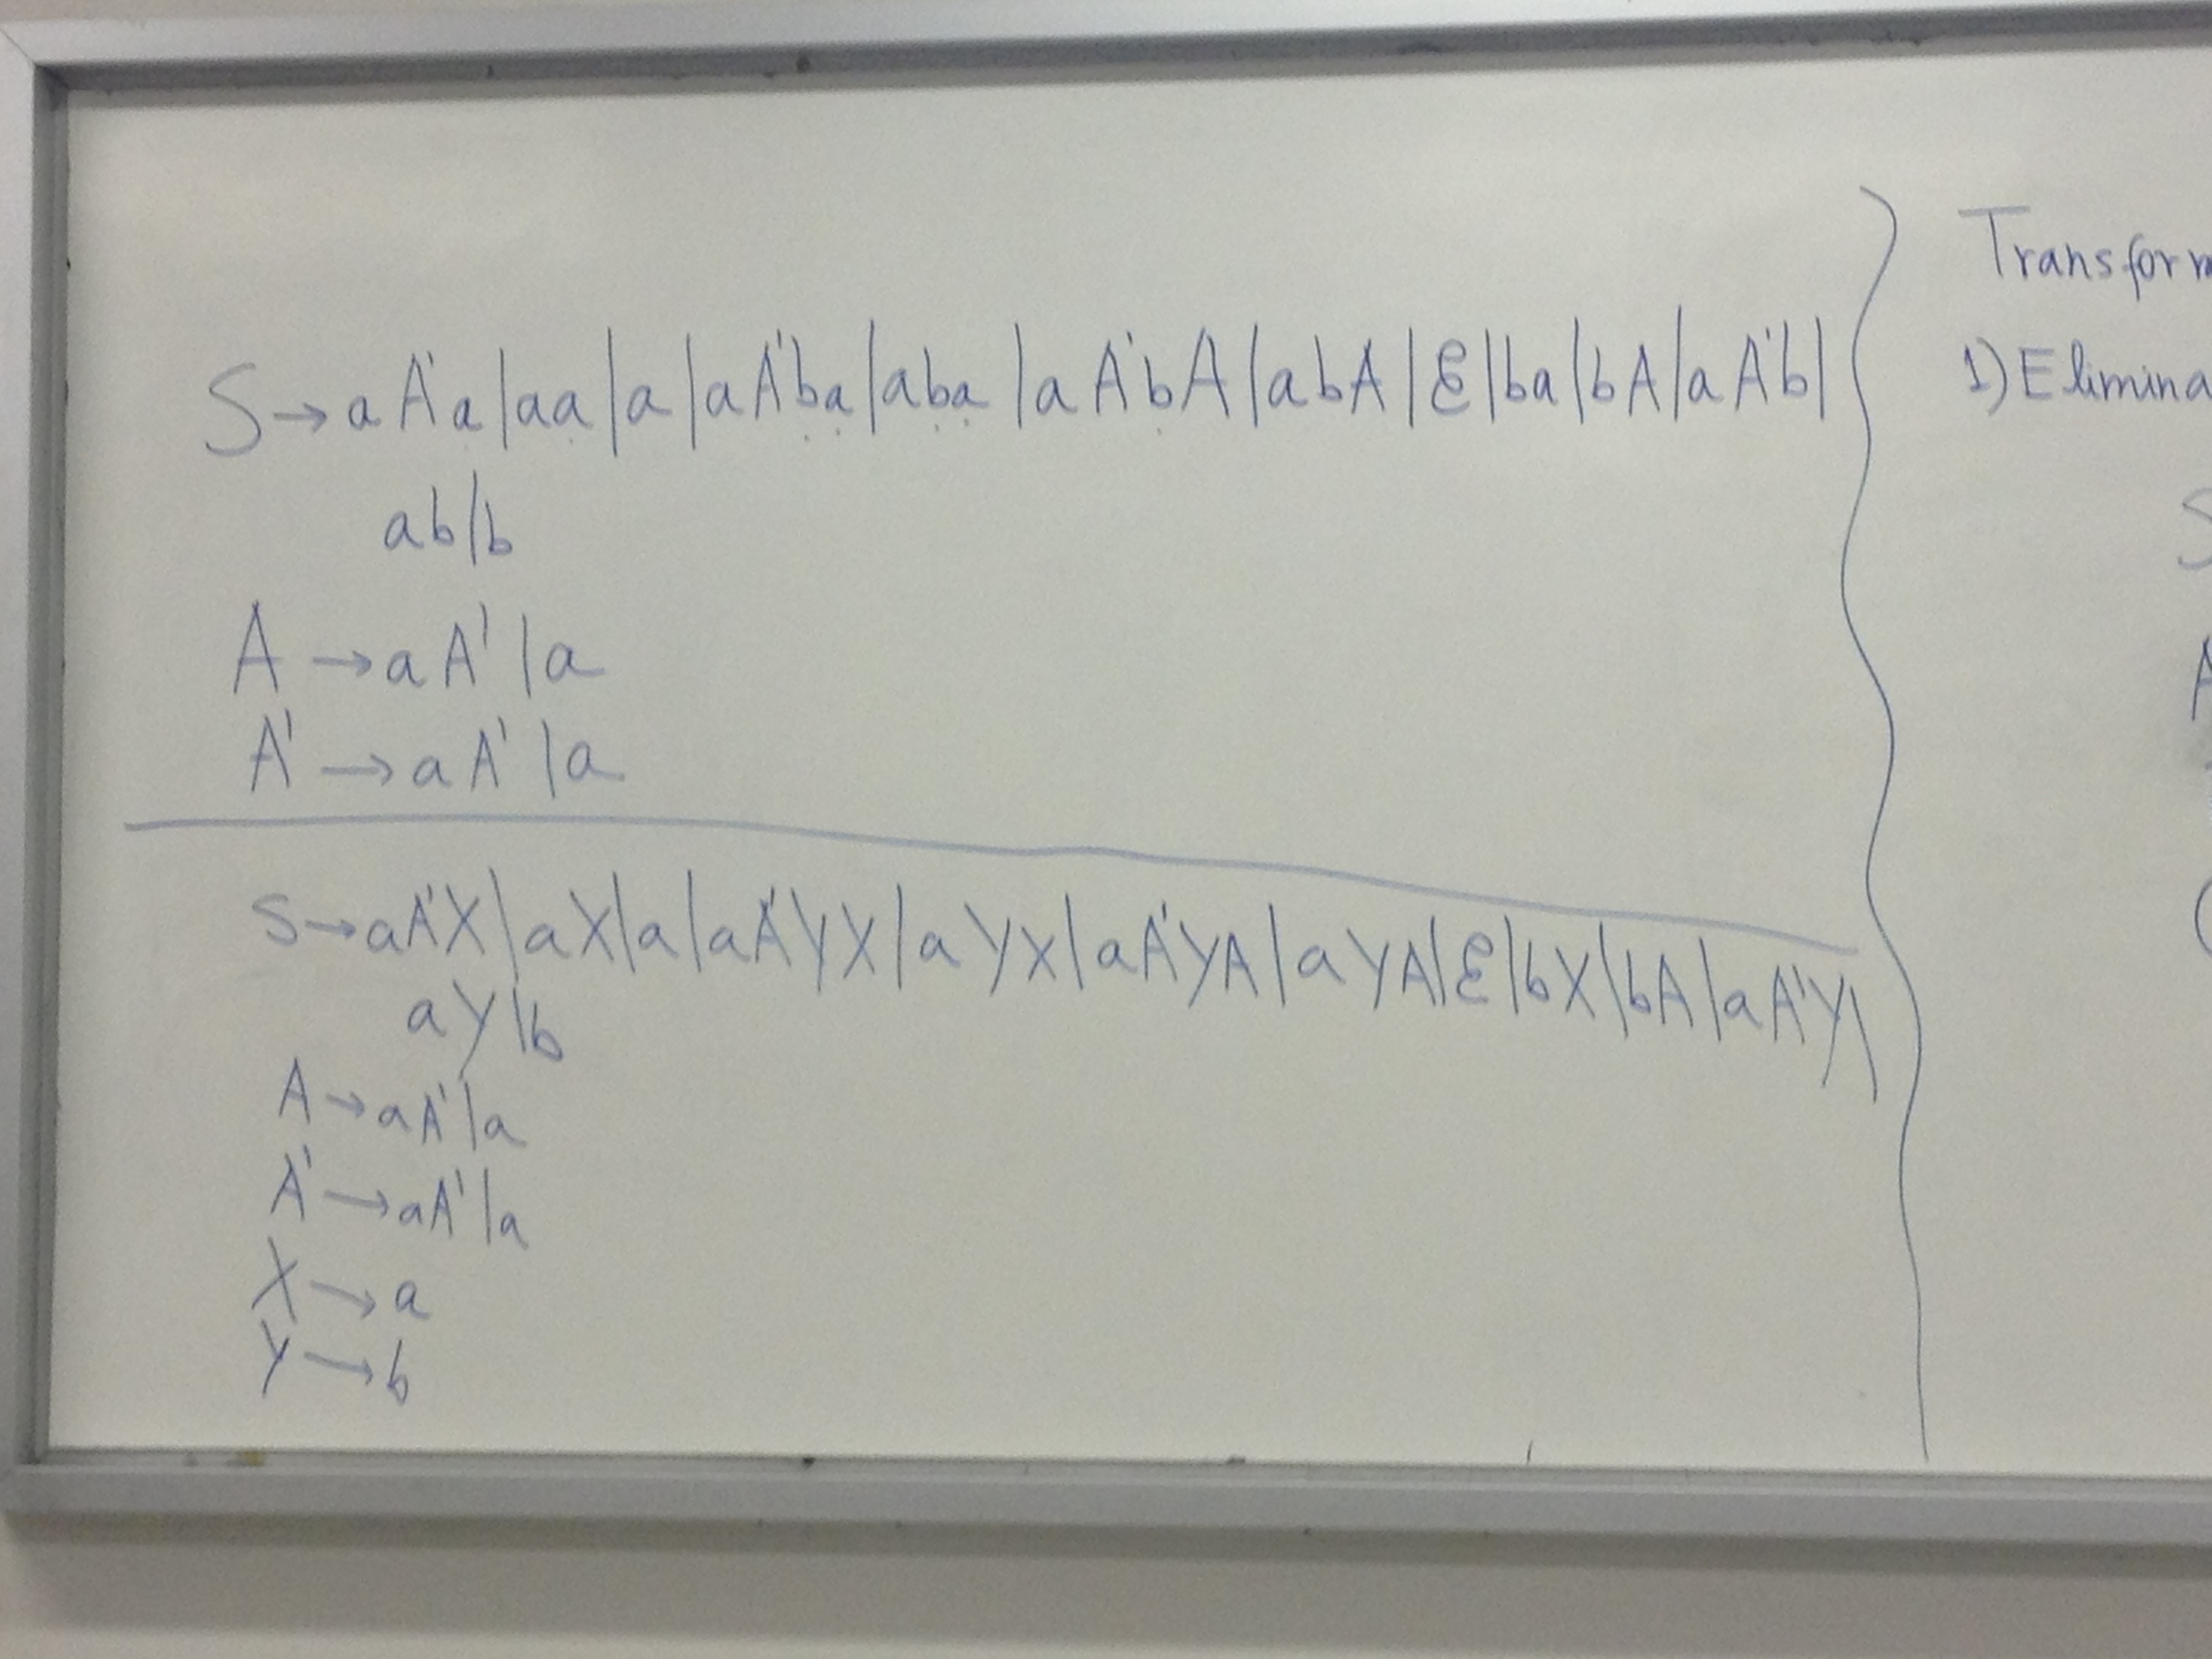 S→aA'a|aa|a|aA'ba|aba|aA'bA|abA|ℇ|ba|bA|aA'b|
ab|b
A→aA'|a
A'→aA'|a
S→aA'X|aX|a|aA'YX|aYX|aA'YA|aYA|ℇ|bX|bA|aA'Y|
aY|b
A→aA'|a
A'→aA'|a
X→a
Y→b
Transform
1) Elimina
S
A